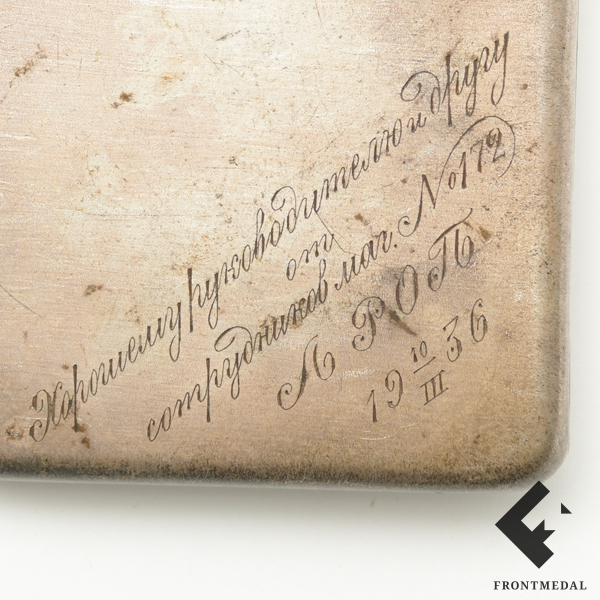 Хорошему руководителю и другу
от
сотрудников маг. № 172
Л Р О П
19 10/III 36
FRONTMEDAL